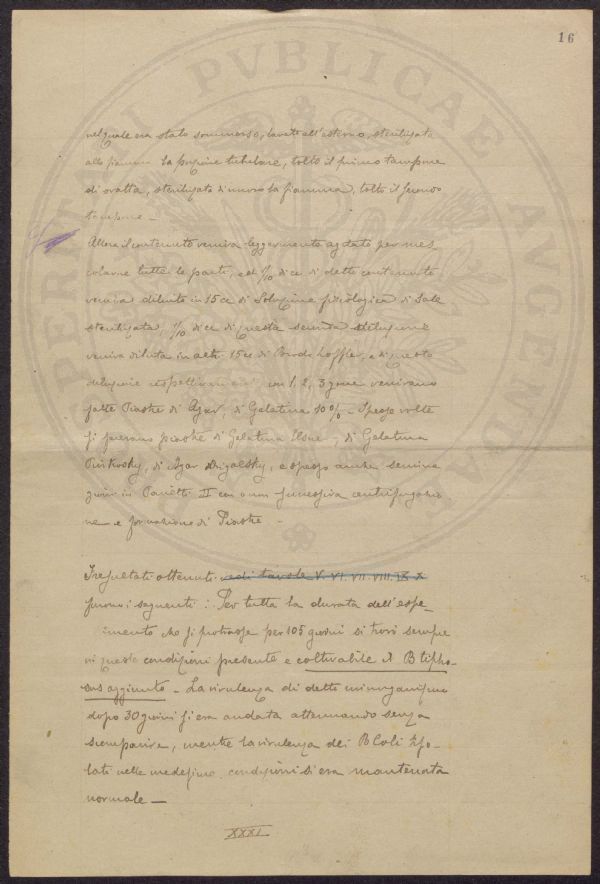 16
nel quale era stato sommerso, lavato all'esterno, sterilizzata
alla fiamma la porzione tubulare, tolto il primo tampone
di ovatta, sterilizzato di nuovo la fiamma, tolto il secondo
tampone —
Allora il contenuto veniva leggermente agitato per mes
colarne tutte le parti, ed 1/10 di cc di detto contenuto
veniva diluito in 15 cc di Soluzione fisiologica di Sale
sterilizzata, 1/10 di cc di questa seconda
veniva diluita in altri 15 cc di Brodo Löffler, e di questo
con 1, 2, 3 gocce venivano
fatte Piastre di Agar, di Gelatina 10%. Spesso volte
si fecero piastre di Gelatina Elsner, di Gelatina
Piorkowsky, di Agar Drigalsky, e spesso anche semina
gioni in Panetti II con successiva centrifugazio
ne e formazione di Piastre —
I resultati ottenuti vedi tavole V. VI. VII. VIII. IX X
furono i seguenti: Per tutta la durata dell'espe-
rimento che si protrasse per 105 giorni si trovò sempre
in queste condizioni presente e coltivabile il B tipho-
sus aggiunto — La virulenza di detto microrganismo
dopo 30 giorni si era andata attenuando senza
scomparire, mentre la virulenza dei B Coli Iso-
lati nelle medesime condizioni si era mantenuta
normale —
XXXI